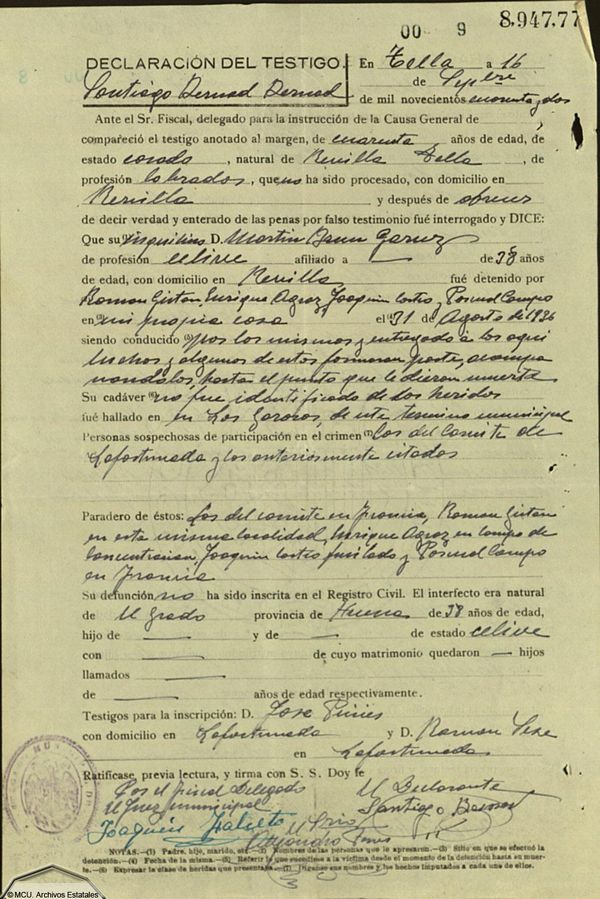 00 9 8.947.77
DECLARACIÓN DEL TESTIGO En Tella a 16
Santiago Bernad Bernad de Spbre
de mil novecientos cuarenta y dos
Ante el Sr. Fiscal, delegado para la instrucción de la Causa General de
compareció el testigo anotado al margen, de cuarenta años de edad, de
estado casado, natural de Revilla Tella, de
profesión labrador, que no ha sido procesado, con domicilio en
Revilla y después de
de decir verdad y enterado de las penas por falso testimonio fué interrogado y DICE:
Que su inquilino D. Martin
de profesión celive afiliado a — de 38 años
de edad, con domicilio en Revilla fué detenido por
Roman Enrique Joaquin y Campo
en (3) mi propia casa el (4) 31 de Agosto de 1936
siendo conducido (5) por los mismos y entregado a los aqui
hechos y algunos de estos formaron parte, acompa
nandolos, hasta el punto que le dieron muerte
Su cadáver (6) no fue identificado de dos heridos
fué hallado en Los de este termino municipal
Personas sospechosas de participación en el crimen (7) los del Comite de
Lafortunada y los anteriormente citados
Paradero de éstos: Los del comite en Francia, Roman
en esta misma localidad, Enrique en campo de
concentracion, Joaquin fusilado y Campo
en Francia
Su defunción no ha sido inscrita en el Registro Civil. El interfecto era natural
de El Grado provincia de Huesca de 38 años de edad,
hijo de — y de — de estado celive
con — de cuyo matrimonio quedaron — hijos
llamados —
de — años de edad respectivamente.
Testigos para la inscripción: D. Jose
con domicilio en Lafortunada y D. Ramon
en Lafortunada
Ratifícase, previa lectura, y firma con S. S. Doy fe
Por el Fiscal Delegado El Declarante
El Juez municipal Santiago
Joaquín El Srio
NOTAS.—(1) Padre, hijo, marido, etc.—(2) Nombres de las personas que le apresaron.—(3) Sitio en que se efectuó la
detención.—(4) Fecha de la misma.—(5) Referir lo que sucediese a la víctima desde el momento de la detención hasta su muer-
te.—(6) Expresar la clase de heridas que presentaba.—(7) Díganse sus nombres y los hechos imputados a cada uno de ellos.
© MCU. Archivos Estatales